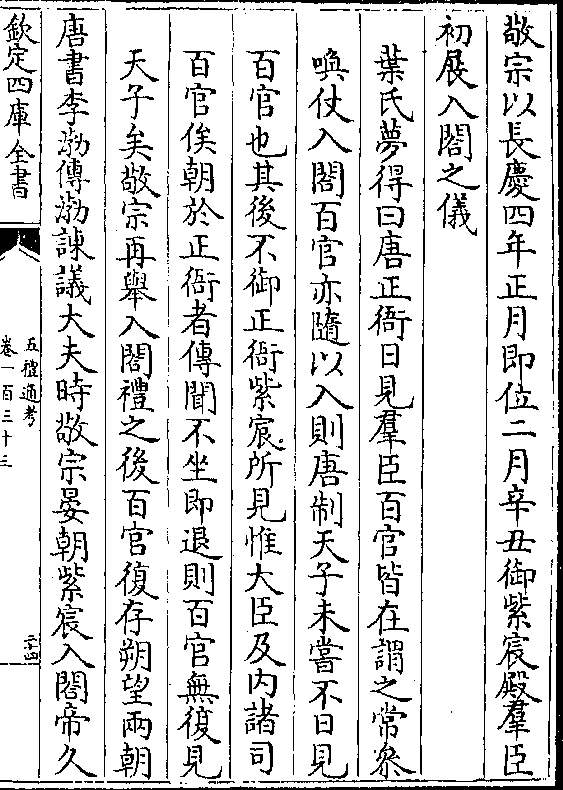 敬宗以長慶四年正月即位二月辛丑御紫宸殿羣臣
初展入閤之儀
葉氏夢得曰唐正衙日見羣臣百官皆在謂之常叅
喚仗入閤百官亦隨以入則唐制天子未嘗不日見
百官也其後不御正衙紫宸所見惟大臣及內諸司
百官俟朝於正衙者傳聞不坐即退則百官無復見
天子矣敬宗再舉入閤禮之後百官復存朔望兩朝
唐書李渤傳渤諫議大夫時敬宗晏朝紫宸入閤帝久
欽定四庫全書
五禮通考
卷一百三十三
二十四